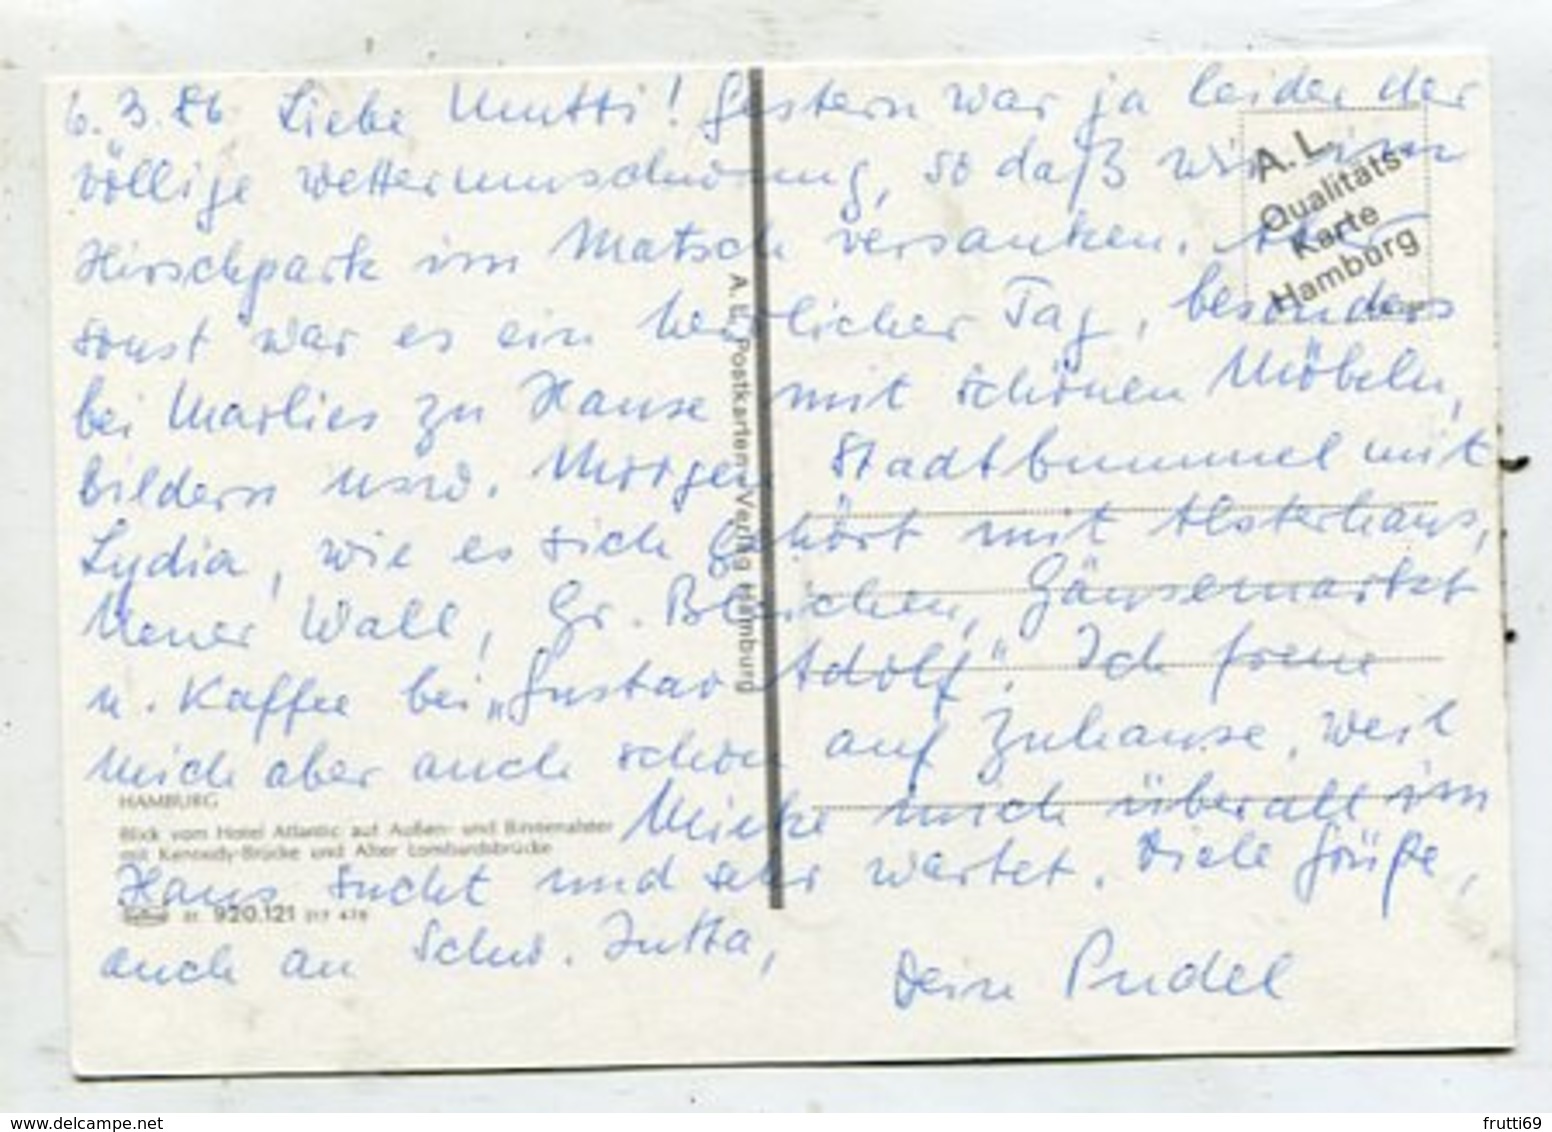 6.3.86 Liebe Mutti! Gestern war ja leider der
völlige Wetterumschwung, so daß wir im
Hirschpark im Matsch versanken. Aber
sonst war es ein herrlicher Tag, besonders
bei Marlies zu Hause mit schönen Möbeln,
Bildern usw. Morgen Stadtbummel mit
Lydia, wie es sich gehört mit Alsterhaus,
Neuer Wall, Gr. Bleichen, Gänsemarkt
u. Kaffee bei „Gustav Adolf“. Ich freue
mich aber auch schon auf Zuhause, weil
Mieke mich überall im
Haus sucht und sehr wartet. Viele Grüße,
auch an Schw. Jutta,
Dein Pudel
A. L.
Qualitäts-
Karte
Hamburg
A. L. Postkarten-Verlag Hamburg
HAMBURG
Blick vom Hotel Atlantic auf Außen- und Binnenalster
mit Kennedy-Brücke und Alter Lombardsbrücke
920.121 217 478
delcampe.net
frutti69